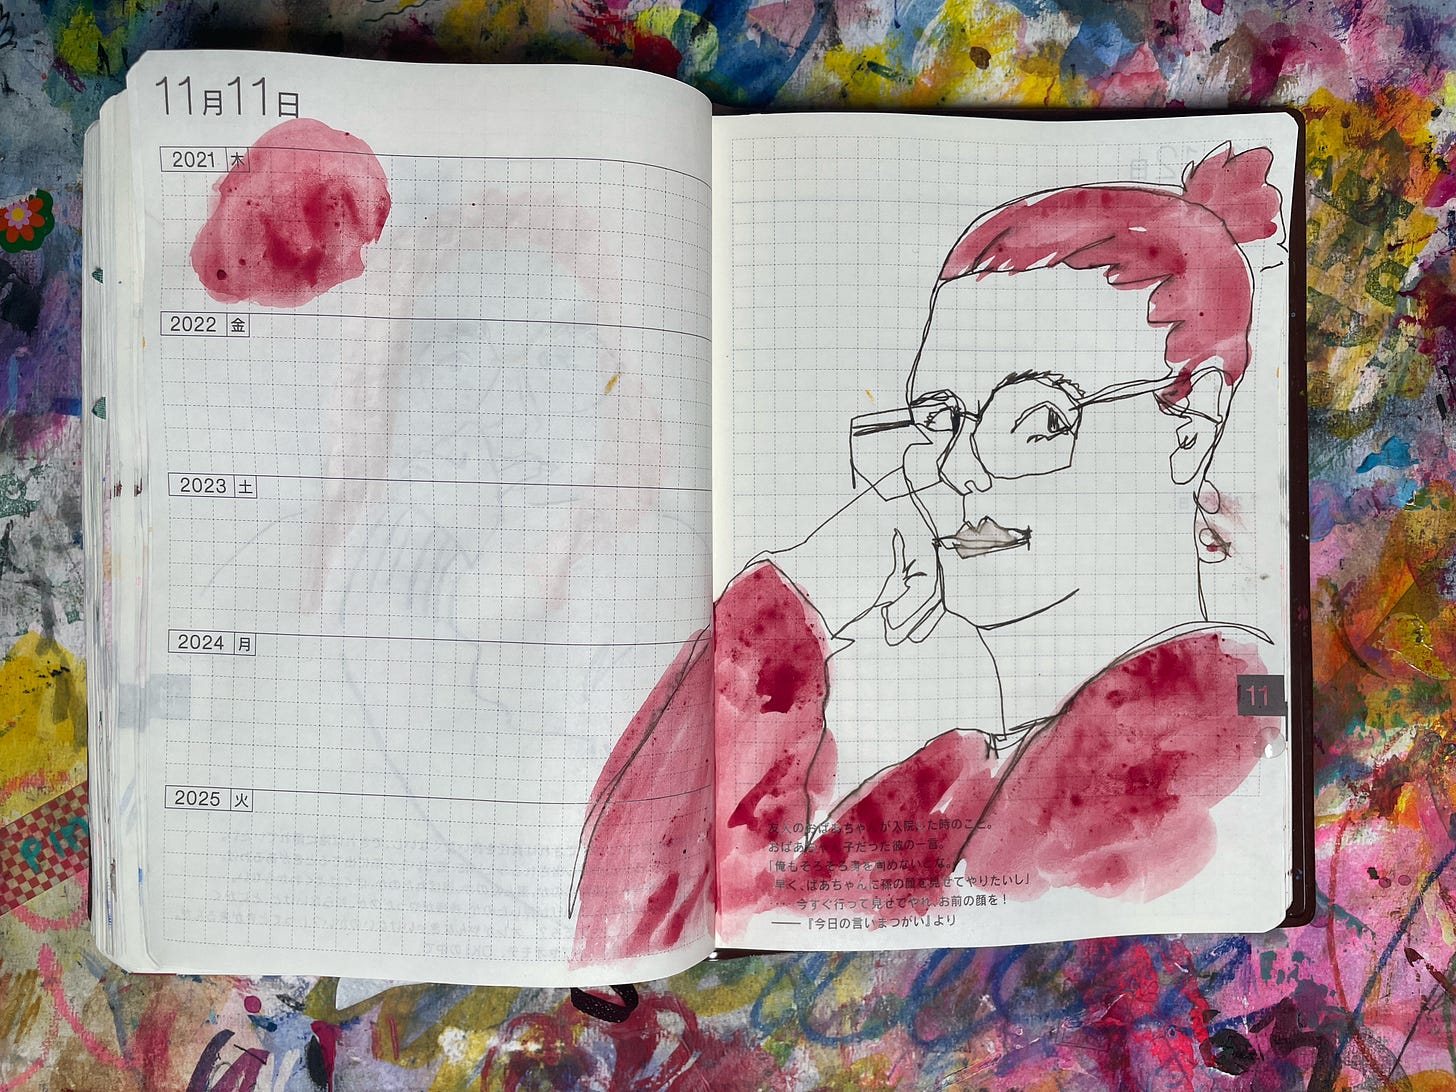 11月11日
2021 木
2022 金
2023 土
2024 月
2025 火
11
友人のおばあちゃんが入院した時のこと。
おばあちゃん子だった彼の一言。
「俺もそろそろ身を固めないとな。
早く、ばあちゃんに孫の顔を見せてやりたいし」
… 今すぐ行って見せてやれ、お前の顔を！
——『今日の言いまつがい』より